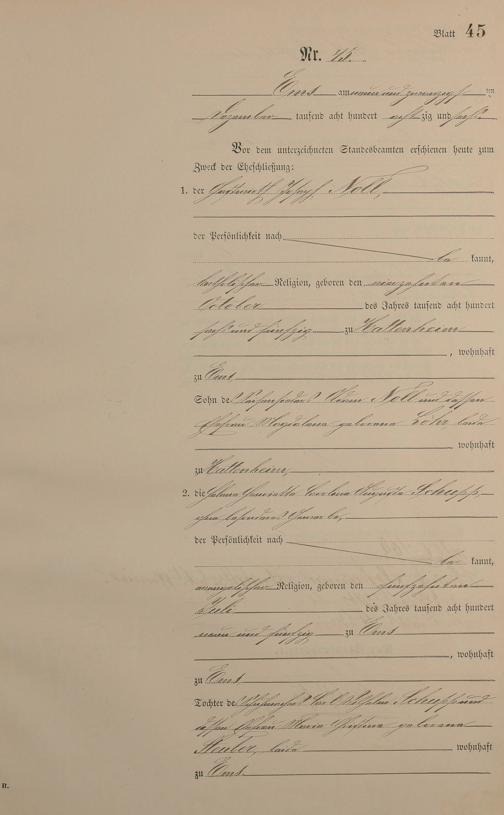 Blatt 45
Nr. 45.
Ems am neun und zwanzigsten
Dezember tausend acht hundert achtzig und sechs
Vor dem unterzeichneten Standesbeamten erschienen heute zum
Zweck der Eheschließung:
1. der Joseph Noll,
der Persönlichkeit nach
be kannt,
katholischer Religion, geboren den
October des Jahres tausend acht hundert
sechs und fünfzig zu Hattenheim
, wohnhaft
zu Ems
Sohn des Adam Noll und dessen
Ehefrau Magdalena geborene Lohr beide
wohnhaft
zu Hattenheim,
2. die Henriette Carolina Augusta Schupp,
ohne besonderes Gewerbe,
der Persönlichkeit nach
be kannt,
evangelischer Religion, geboren den fünfzehnten
Juli des Jahres tausend acht hundert
neun und fünfzig zu Ems
, wohnhaft
zu Ems
Tochter des Carl Wilhelm Schupp und
dessen Ehefrau Maria Christina geborene
beide wohnhaft
zu Ems
B.